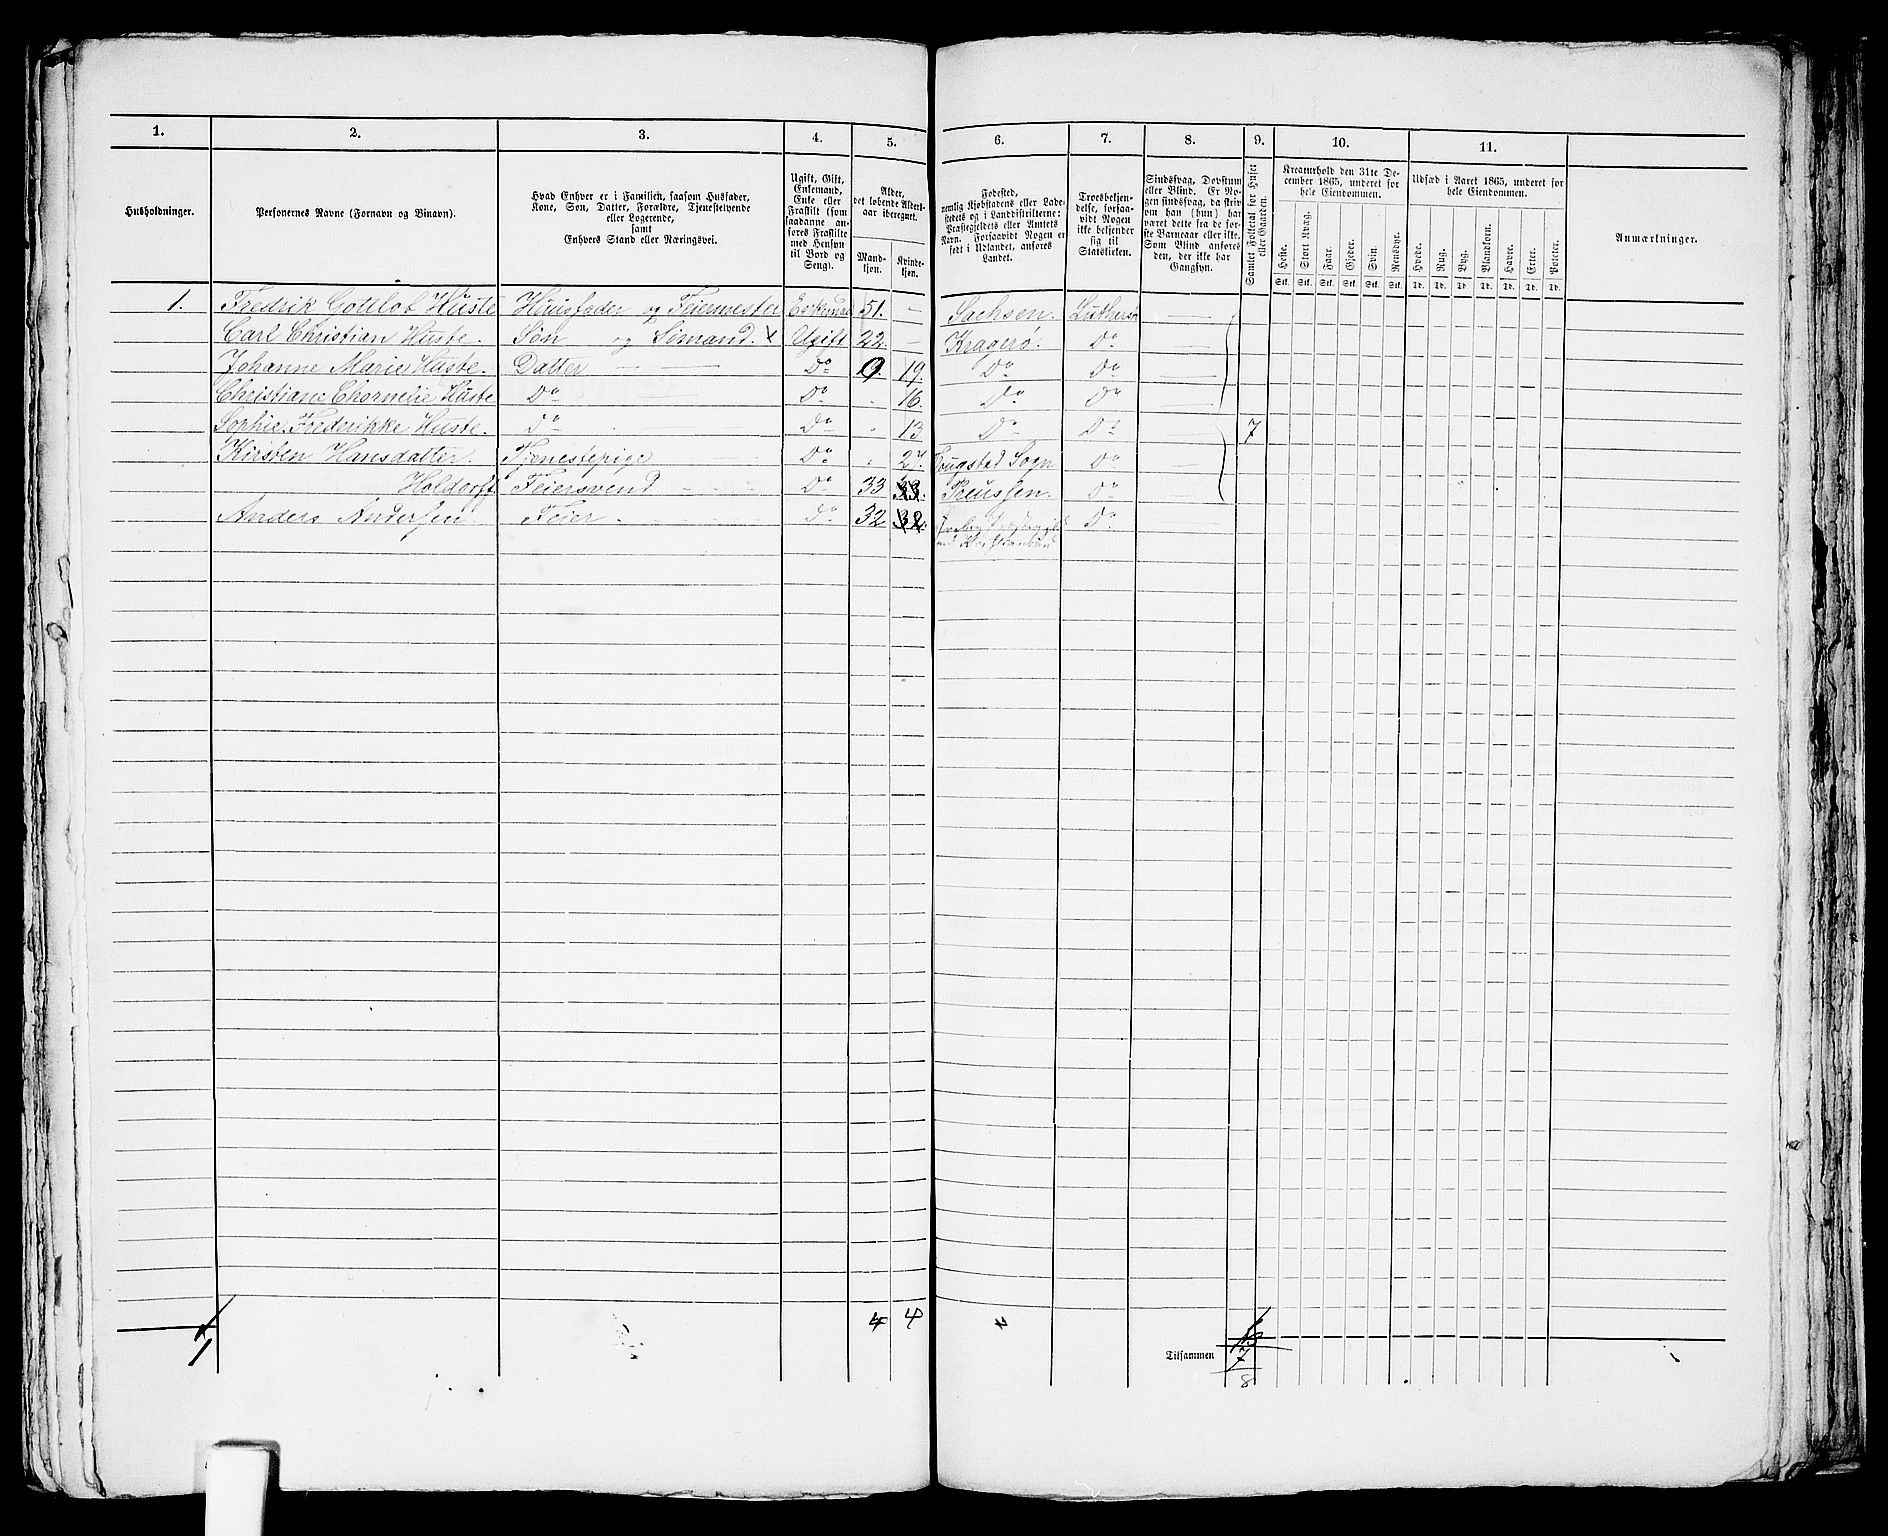 1. 2. 3. 4. 5. 6. 7. 8. 9. 10. 11.
Husholdninger.
Personernes Navne (Fornavn og Binavn).
Hvad Enhver er i Familien, saasom Husfader,
Kone, Søn, Datter, Forældre, Tjenestetyende
eller Logerende,
samt
Enhvers Stand eller Næringsvei.
Ugift, Gift,
Enkemand,
Enke eller
Fraskilt (som
saadanne an-
føres Fraskilte
med Hensyn
til Bord og
Seng).
Alder,
det løbende Alders-
aar iberegnet.
Mand-
kjøn.
Kvinde-
kjøn.
Fødested,
nemlig Kjøbstadens eller Lade-
stedets og i Landdistrikterne:
Præstegjeldets eller Amtets
Navn. Forsaavidt Nogen er
født i Udlandet, anføres
Landet.
Troesbekjen-
delse, forsaa-
vidt Nogen
ikke bekjender
sig til
Statskirken.
Sindssvag, Døvstum
eller Blind. Er No-
gen sindssvag, da skriv
om han (hun) har
været dette fra de før-
ste Barneaar eller ikke.
Som Blind anføres
den, der ikke har
Gangsyn.
Samlet Folketal for Huset
eller Gaarden.
Kreaturhold den 31te De-
cember 1865, underet for
hele Eiendommen.
Heste. Stort Kvæg. Faar. Gjeder. Svin. Rensdyr.
Stk. Stk. Stk. Stk. Stk. Stk.
Udsæd i Aaret 1865, underet for
hele Eiendommen.
Hvede. Rug. Byg. Blandkorn. Havre. Erter. Poteter.
Td. Td. Td. Td. Td. Td. Td.
Anmærkninger.
1. Fredrik Gottlob Huste Huusfader og Feiermester Enkemand 51. — Sachsen. Luthersk —
Carl Christian Huste. Søn og Sømand. x Ugift 22. — Kragerø. Do —
Johanne Marie Huste. Datter — — Do 0. 19. Do Do —
Christiane Chornelie Huste Do Do 16. Do Do
Sophie Frederikke Huste. Do Do 13 Do Do — 7
Kirsten Hansdatter. Tjenestepige Do 27. Do —
Holdorff Feiersvend Do 33 33. Preussen. Do
Anders Andersen Feier Do 32 32. Do
4 4
1
Tilsammen 7
8